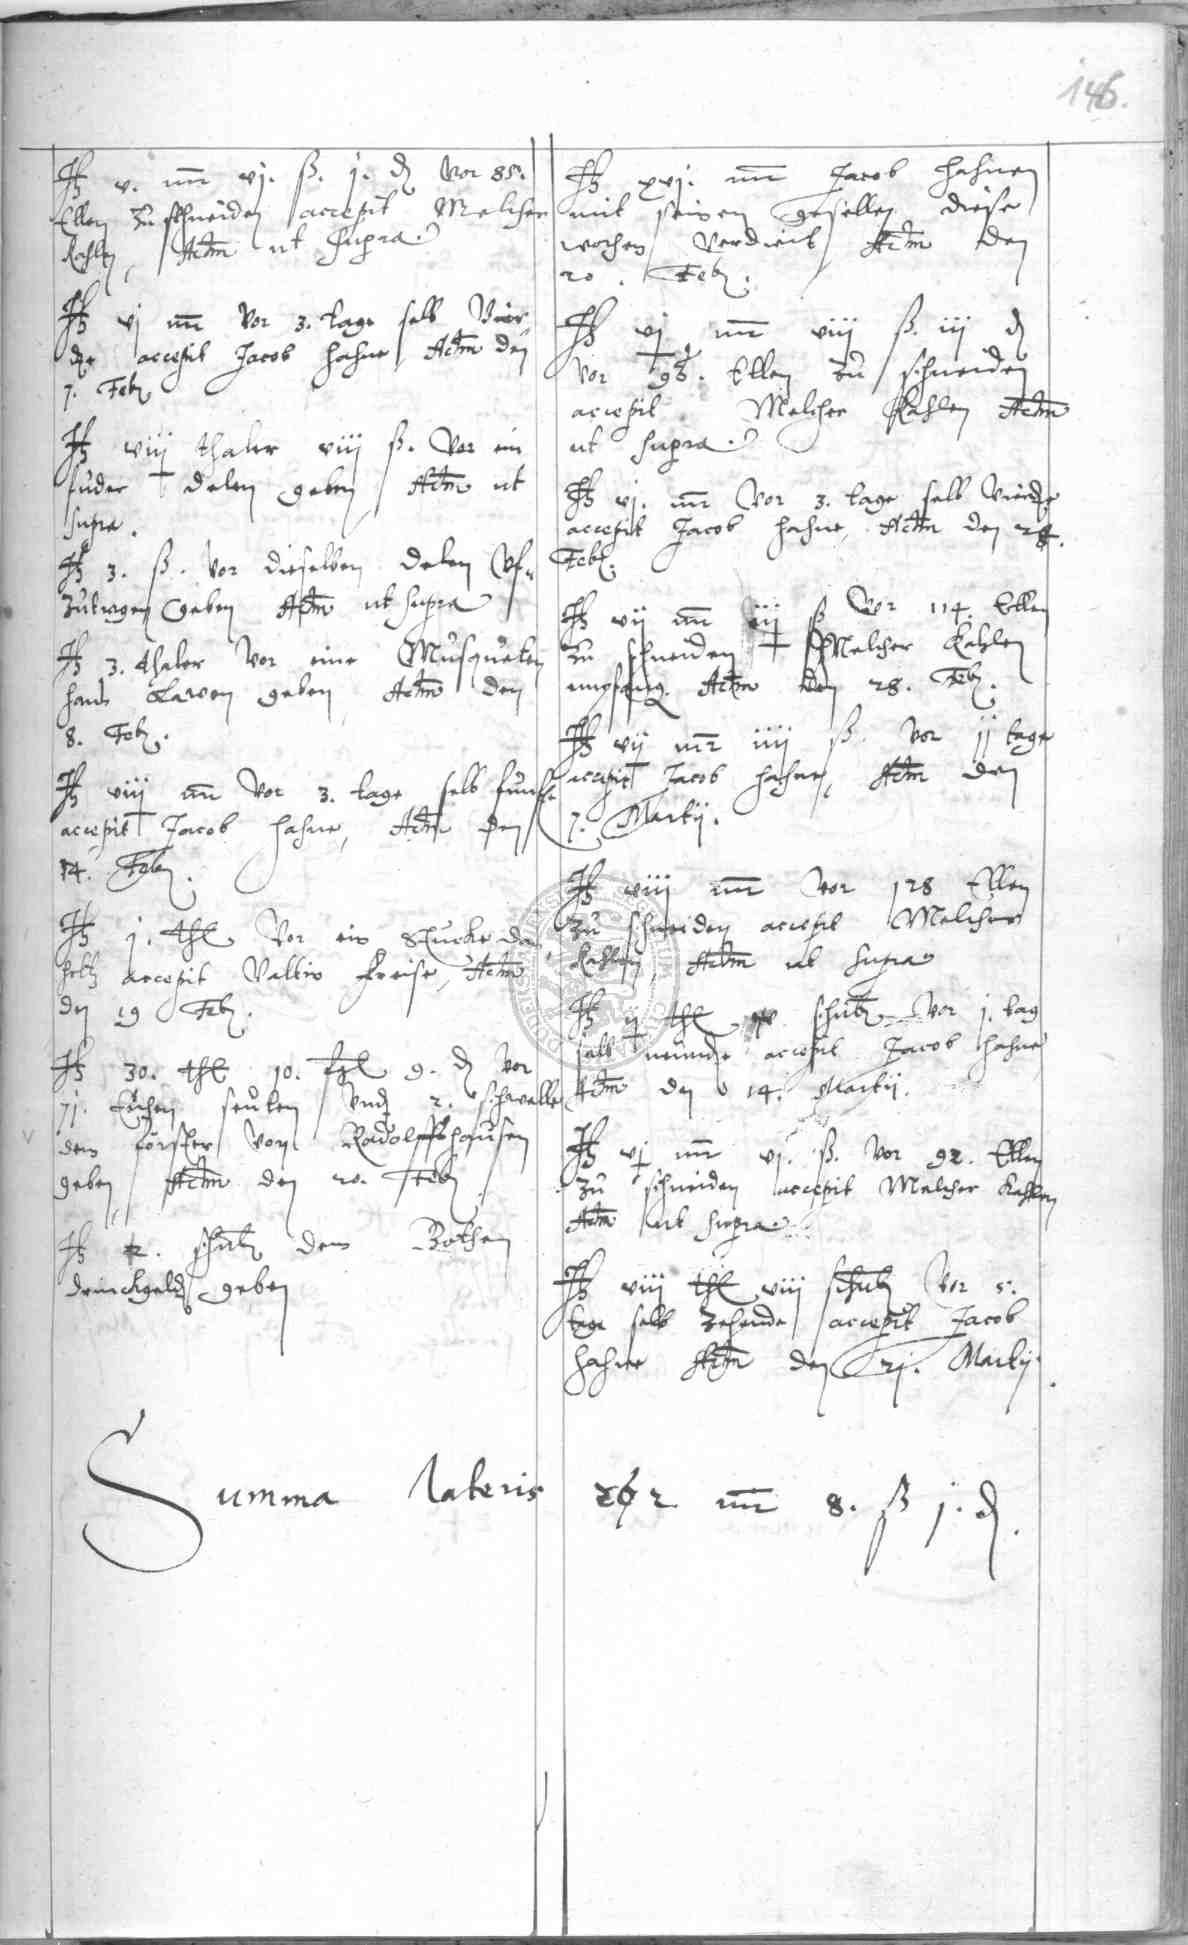 146.
It v. mr vj. ß. j. d vor 85.
Ellen zu schneiden accepit Melcher
Kahlen, Actum ut supra.
It vj mr vor 3. tage selb Vier
de accepit Jacob Hahne Actum den
7. Feb.
It viij thaler viij ß. vor ein
fuder delen geben Actum ut
supra.
It 3. ß. vor dieselben delen Uf
zutragen geben Actum ut supra
It 3. thaler vor eine Musqueten
Hans geben Actum den
8. Feb.
It viiij mr vor 3. tage selb funffte
accepit Jacob Hahne, Actum den
14. Feb.
It j. thl vor ein Stucke
accepit Valtin Actum
den 19 Feb.
It 30. thl 10. 9. d vor
71. Eichen seulen und 2. schwelle
dem förster von Radolffshausen
geben Actum den 20. Feb.
It 2. schul dem Bothen
drinckgeld geben
It xvj. mr Jacob Hahnen
mit seinen gesellen diese
wochen verdient Actum den
20. Feb.
It vj mr viij ß. iij d
vor 98. Ellen zu schneiden
accepit Melcher Kahlen Actum
ut supra.
It vj. mr vor 3. tage selb Vierde
accepit Jacob Hahne, Actum den 28.
Feb.
It vij mr iij ß vor 114. Ellen
zu schneiden Melcher Kahlen
empfang. Actum den 28. Feb.
It vij mr iiij ß. vor jj tage
accepit Jacob Hahne, Actum den
7. Martij.
It viij mr vor 128 Ellen
zu schneiden accepit Melcher
Kahlen, Actum ut supra
It ij thl schul vor j. tag
selb neunde accepit Jacob Hahne
Actum den 14. Martij.
It vj mr vj. ß. vor 92. Ellen
zu schneiden accepit Melcher Kahlen
Actum ut supra
It viij thl viij schul vor 5.
tage selb zehende accepit Jacob
Hahne Actum den 21. Martij.
Summa lateris 262 mr 8. ß j. d.